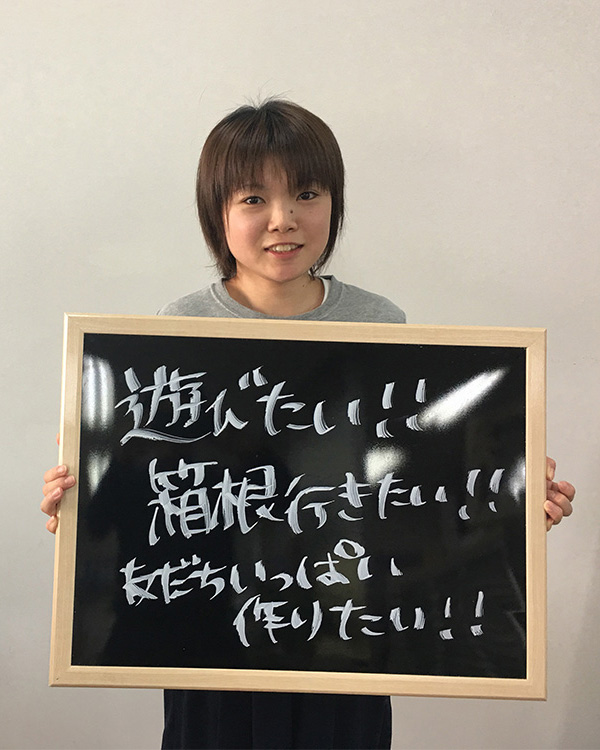 遊びたい!!
箱根行きたい!!
友だちいっぱい
作りたい!!